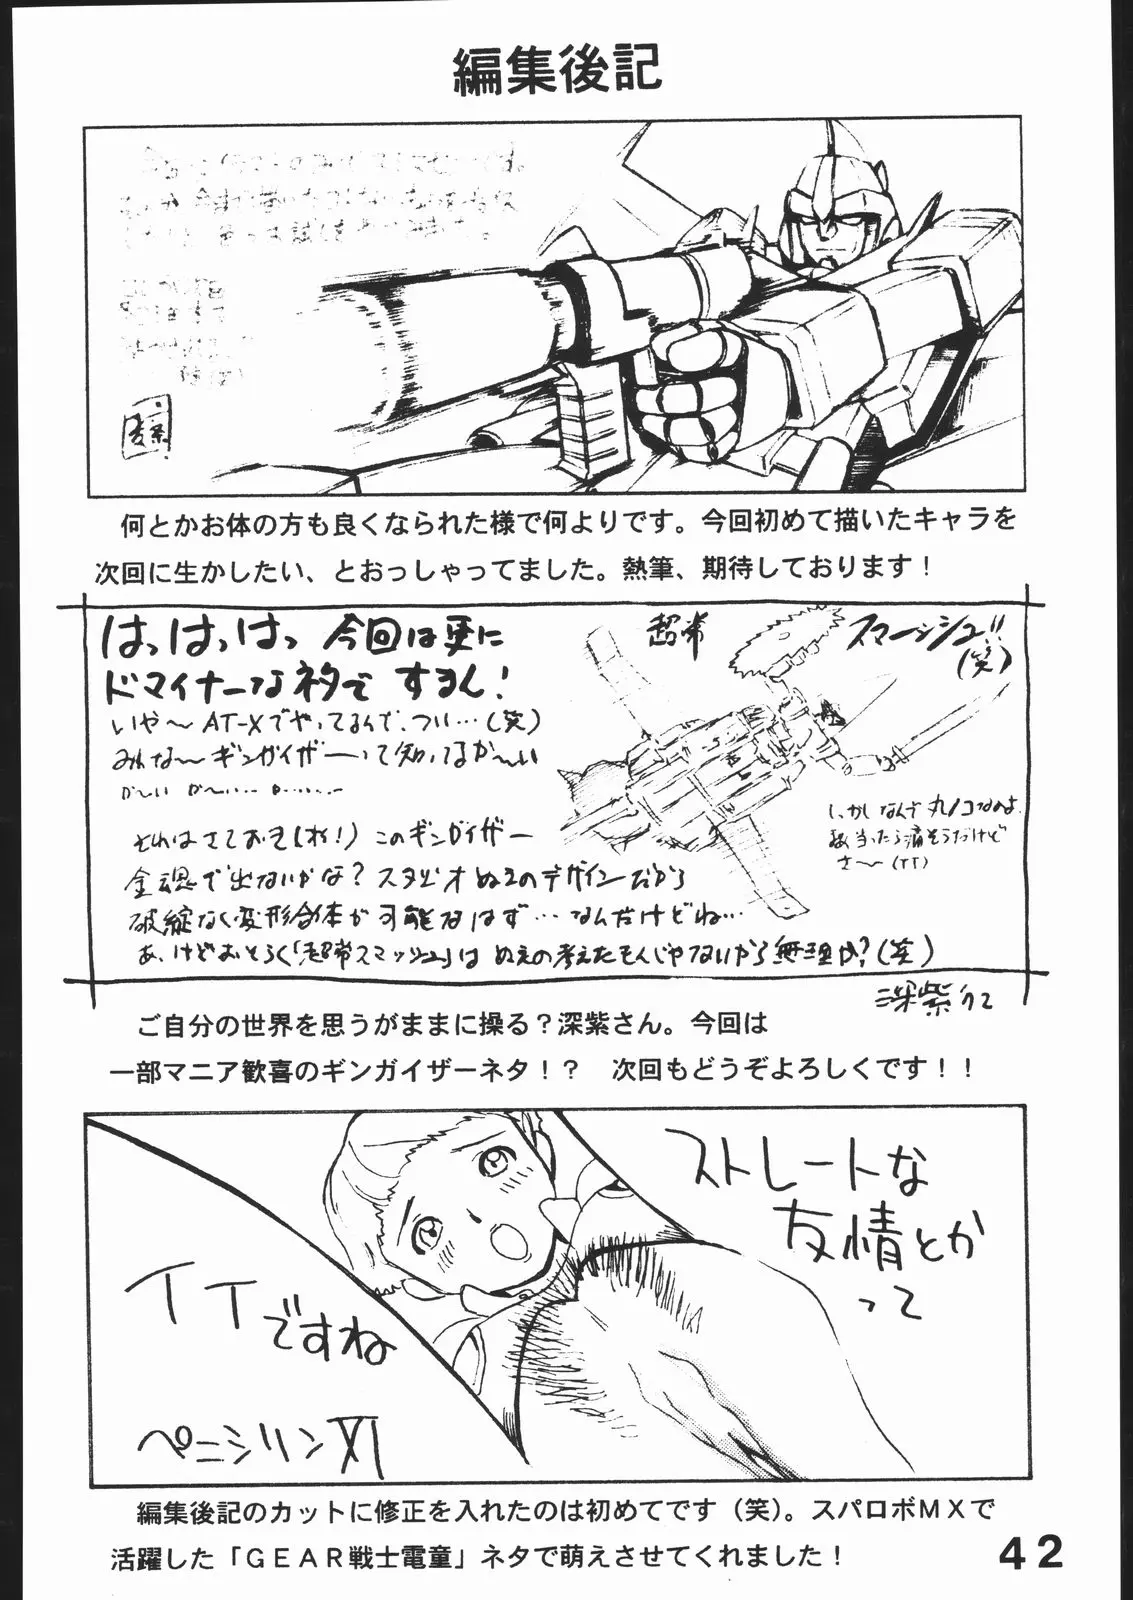 編集後記
何とかお体の方も良くなられた様で何よりです。今回初めて描いたキャラを
次回に生かしたい、とおっしゃってました。熱筆、期待しております！
はっはっはっ 今回は更に
ドマイナーなネタで するん！
いや〜 AT-Xでやってるんで、つい…(笑)
みんな〜ギンガイザーって知ってるか〜い
か〜い か〜い‥‥
超常
スマーッシュ!!
(笑)
しかしなんで丸ノコなのよ
当たら痛そうだけど
さ〜(TT)
それはさておき(ね！) このギンガイザー
金魂で出ないかな？スタジオぬえのデザインだから
破綻なく変形合体が可能なはず…なんだけどね…
あ、けどおそらく「超常スマッシュ」は ぬえの考えたもんじゃないから無理か？(笑)
深紫
ご自分の世界を思うがままに操る？深紫さん。今回は
一部マニア歓喜のギンガイザーネタ！？ 次回もどうぞよろしくです！！
ストレートな
友情とか
って
イイ
ですね
ペニシリンXI
編集後記のカットに修正を入れたのは初めてです（笑）。スパロボＭＸで
活躍した「ＧＥＡＲ戦士電童」ネタで萌えさせてくれました！
42